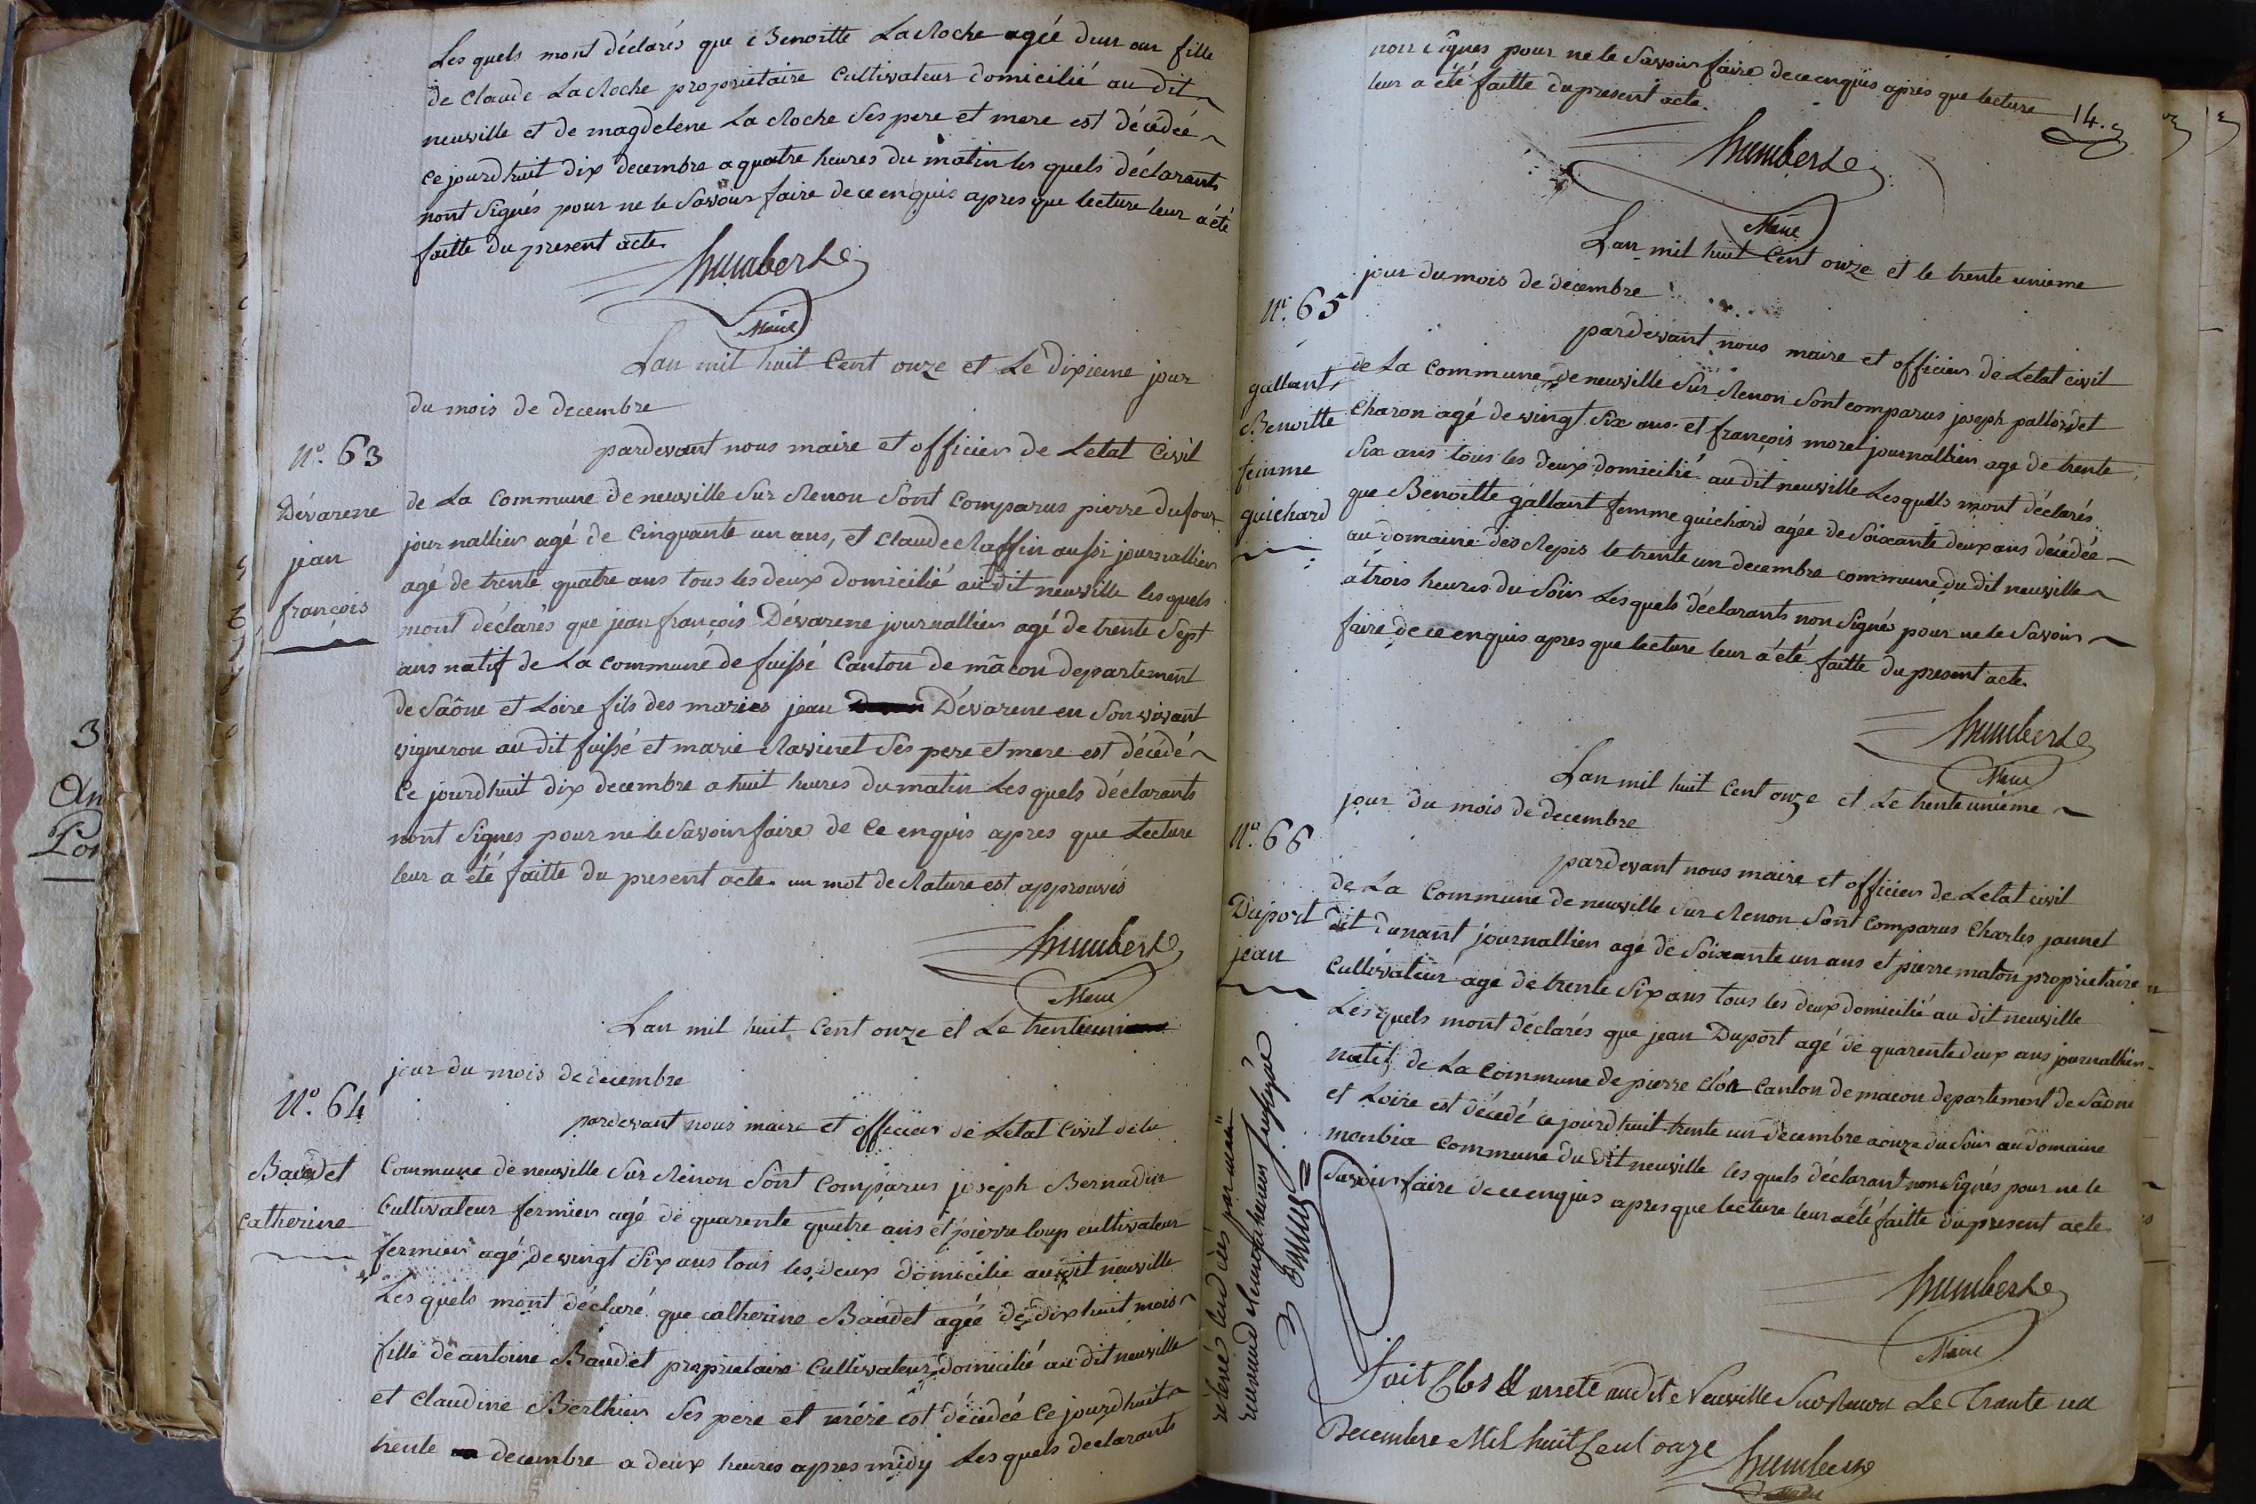 Les quels mont déclarés que Benoitte La Roche agéé dun an fille
de Claude La Roche propriétaire Cultivateur domicilié au dit
neuville et de magdelene La Roche Ses pere et mere est décédéé
Ce jourdhuit dix decembre a quatre heures du matin les quels déclarants
nont Signés pour ne le Savoir faire de ce enquis apres que lecture leur a été
faitte du present acte.
humbert
Maire
Lan mil huit Cent onze et Le dixieme jour
du mois de decembre
N°. 63
Dévarene
jean
françois
pardevant nous maire et officier de Letat Civil
de La Commune de neuville Sur Renon Sont Comparus pierre dufour
journallier agé de Cinquante un ans, et Claude Raffin aussi journallier
agé de trente quatre ans tous les deux domicilié au dit neuville les quels
mont déclarés que jean françois Dévarene journallier agé de trente Sept
ans natif de La Commune de fuissé Canton de mâcon departement
de Saône et Loire fils des mariés jean Dévarene en Son vivant
vigneron au dit fuissé et marie Ravinet Ses pere et mere est décédé
Ce jourdhuit dix decembre a huit heures du matin Les quels déclarants
nont Signes pour ne le Savoir faire de Ce enquis apres que Lecture
leur a été faitte du present acte. un mot de Rature est approuvés
humbert
Maire
Lan mil huit Cent onze et Le trente
jour du mois de decembre
N°. 64
Baudet
Catherine
pardevant nous maire et officier de Letat Civil de la
Commune de neuville Sur Renon Sont Comparus joseph Bernadin
Cultivateur fermier agé de quarente quatre ans et pierre loup cultivateur
fermier agé de vingt Six ans tous les deux domicilie au dit neuville
Les quels mont déclaré que catherine Baudet agéé de dix huit mois
fille de antoine Baudet proprietaire Cultivateur domicilié au dit neuville
et Claudine Berthier Ses pere et mére est décédéé Ce jourdhuit
trente decembre a deux heures apres midy Les quels declarants
non Signes pour ne le Savoir faire de ce enquis apres que lecture
leur a été faitte du present acte.
14.
humbert
Maire
Lan mil huit Cent onze et le trente unieme
jour du mois de décembre
N°. 65
gallant
Benoitte
femme
guichard
pardevant nous maire et officier de Letat civil
de La Commune de neuville Sur Renon Sont comparus joseph pallordet
Charon agé de vingt Six ans et françois morel journallier age de trente
Six ans tous les deux domicilié au dit neuville Lesquels mont déclarés
que Benoitte gallant femme guichard agée de Soixante deux ans décédée
au domaine des Repis le trente un decembre commune du dit neuville
a trois heures du Soir Les quels déclarants non Signés pour ne le Savoir
faire de ce enquis apres que lecture leur a été faitte du present acte.
humbert
Maire
Lan mil huit Cent onze et Le trente unieme
jour du mois de decembre
N°. 66
Duport
jean
pardevant nous maire et officier de Letat civil
de La Commune de neuville Sur Renon Sont Comparus Charles jannet
dit dunant journallier agé de Soixante un ans et pierre maton proprietaire
Cultivateur agé de trente Six ans tous les deux domicilié au dit neuville
Les quels mont déclarés que jean Duport agé de quarente deux ans journallier
natif de La Commune de pierre Clôt Canton de macon departement de Saone
et Loire est décédé ce jourdhuit trente un decembre a onze du Soir au domaine
monbia commune du dit neuville les quels déclarant non Signés pour ne le
Savoir faire de ce enquis apres que lecture leur a été faitte du present acte.
humbert
Maire
Fait Clos & arreté audite Neuville Sur Renon Le Trante un
Decembre Mil huit Cent onze
humbert
Maire